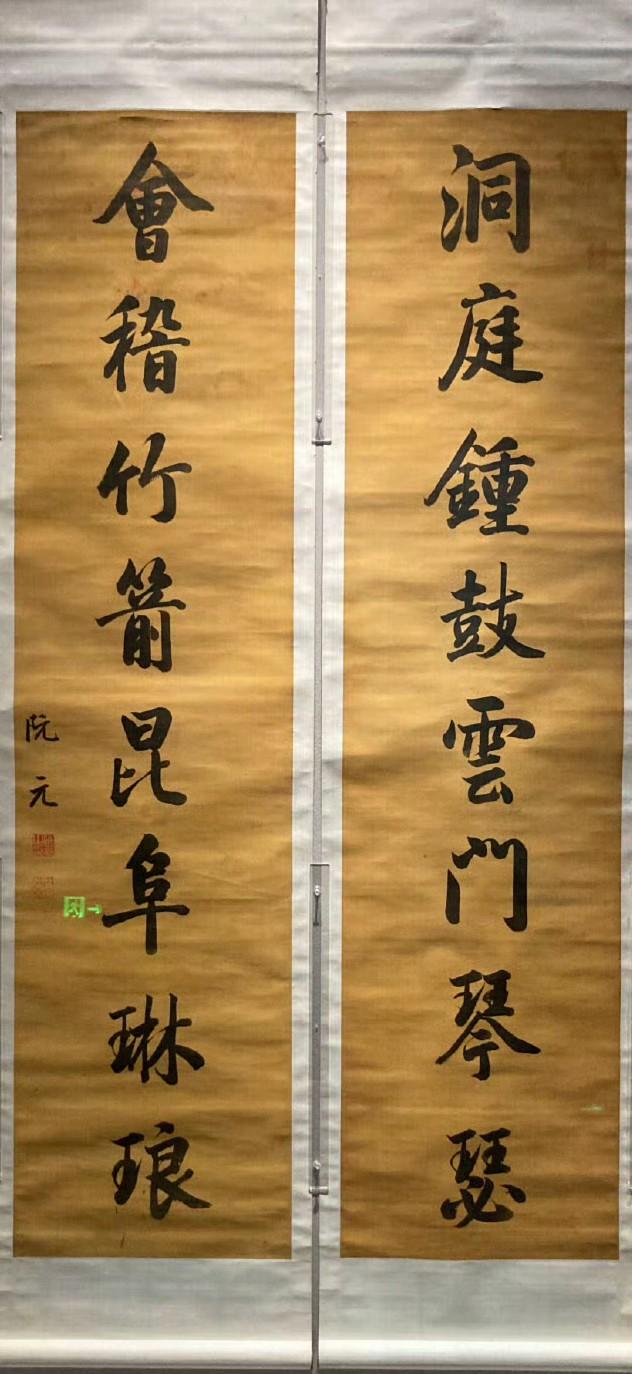 洞庭鍾鼓雲門琴瑟
會稽竹箭昆阜琳琅
阮元